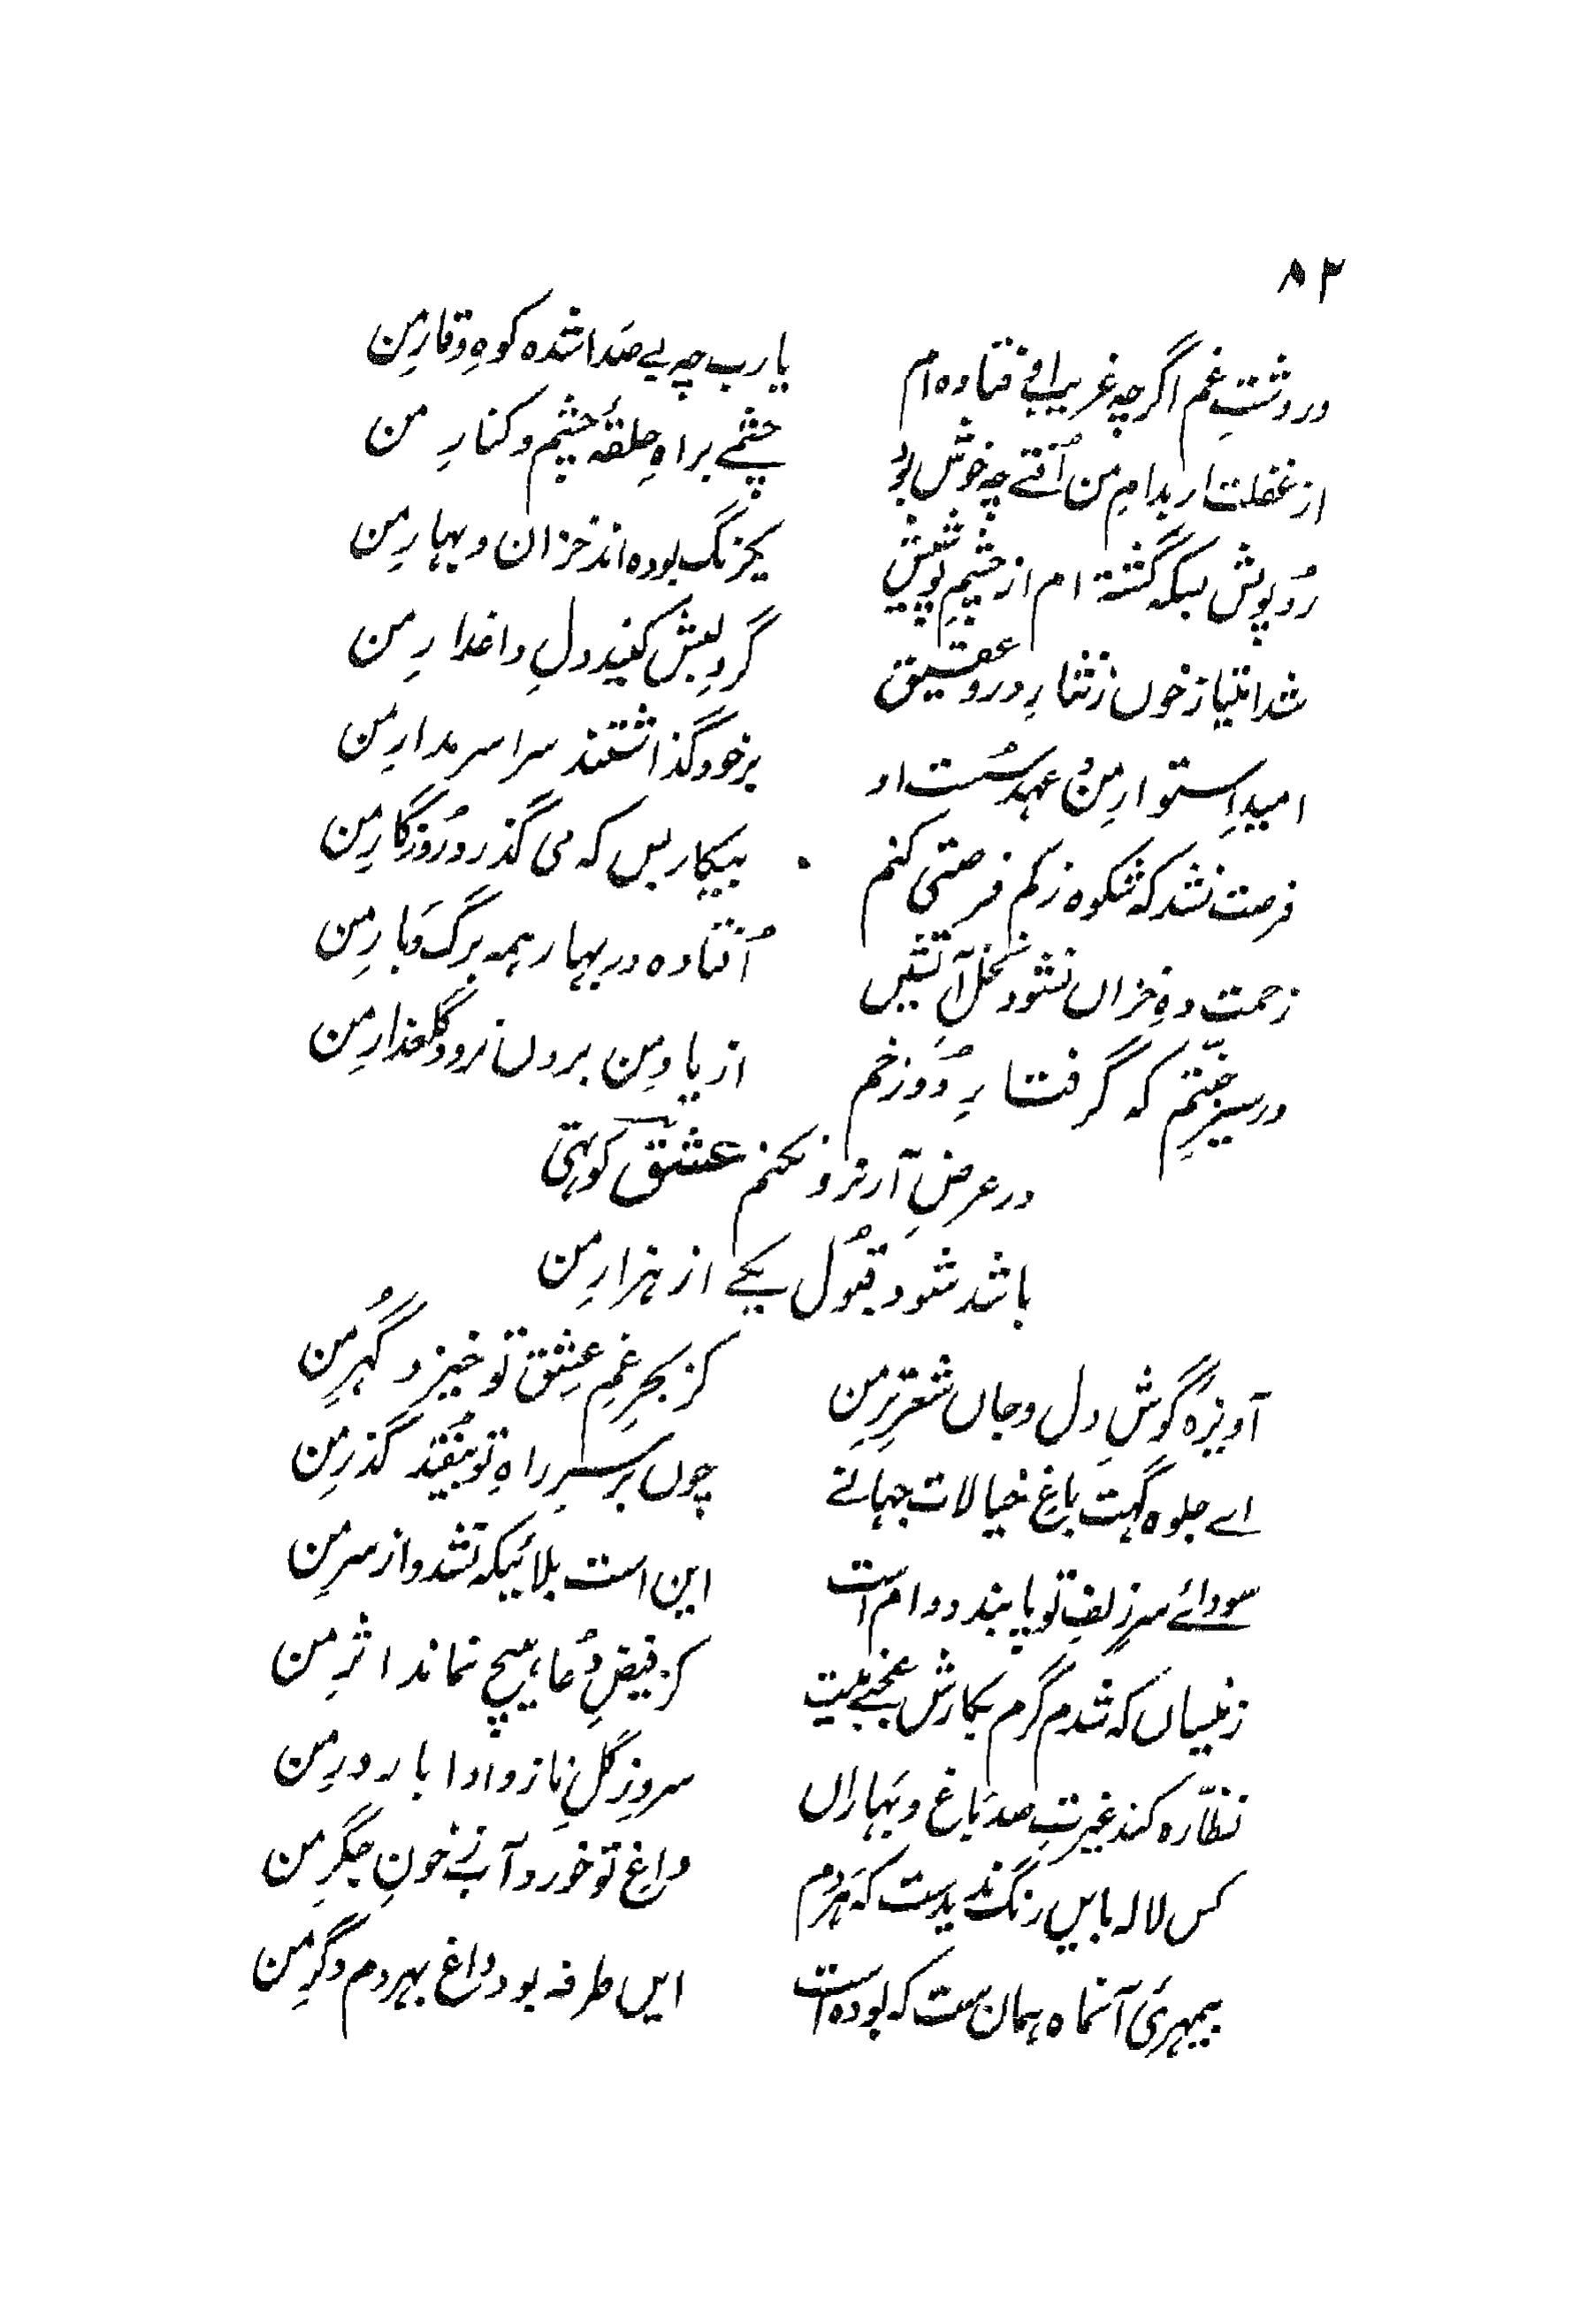 ۸۲
در دشتِ غم اگرچہ غریبانہ فتادہ ام
یارب چہ بے صدا شدہ کوہِ وقارِ من
از غفلت ار بدامِ من اُفتے چہ خوش بوَد
چشمے براہِ حلقۂ چشم و کنارِ من
رُو پوش بسکہ گشتہ ام از چشمِ
یکرنگ بودہ اند خزان و بہارِ من
شد امتیاز خوں ز نثارِ در و عقیق
گردِ لبش کنید دلِ داغدارِ من
امیدِ استوارِ من و عہد سُستِ او
بر خود گذاشتند سراسر مدارِ من
فرصت نشد کہ شکوہ ز کم فرصتی کنم
بیکار بس کہ می گذرد رُوزگارِ من
زحمت دہِ خزاں نشود نخلِ آتشیں
اُفتادہ در بہار ہمہ برگ و بارِ من
در سیرِ جنّتم کہ گرفتارِ دُوزخم
از یادِ من بروں نرود گلعذارِ من
در عرضِ آرزو نکنم عشقؔ کوتہی
باشد شود قبُول یکے از ہزارِ من
آویزہ گوشِ دل و جاں شعرِ ترِ من
کز بحرِ غمِ عشق تو خیزد گُہرِ من
اے جلوہ گہت باغِ خیالات جہانے
چوں بر سرِ راہِ تو بیُفتد گذرِ من
سودائے سرِ زلفِ تو پابند دوام است
این است بلائیکہ نشد واز سرِ من
زینساں کہ شدم گرم بکارش عجبے نیست
کز فیضِ دُعا ہیچ نماند اثرِ من
نظّارہ کند غیرتِ صد باغ و بہاراں
سروِ ز گلِ ناز و ادا بارورِ من
کس لالہ بایں رنگ ندیدست کہ ہردم
داغِ تو خورد آب ز خونِ جگرِ من
بیمہریٔ آنماہ ہمان ست کہ بودہ است
ایں طرفہ بود داغ بہر دم دگرِ من